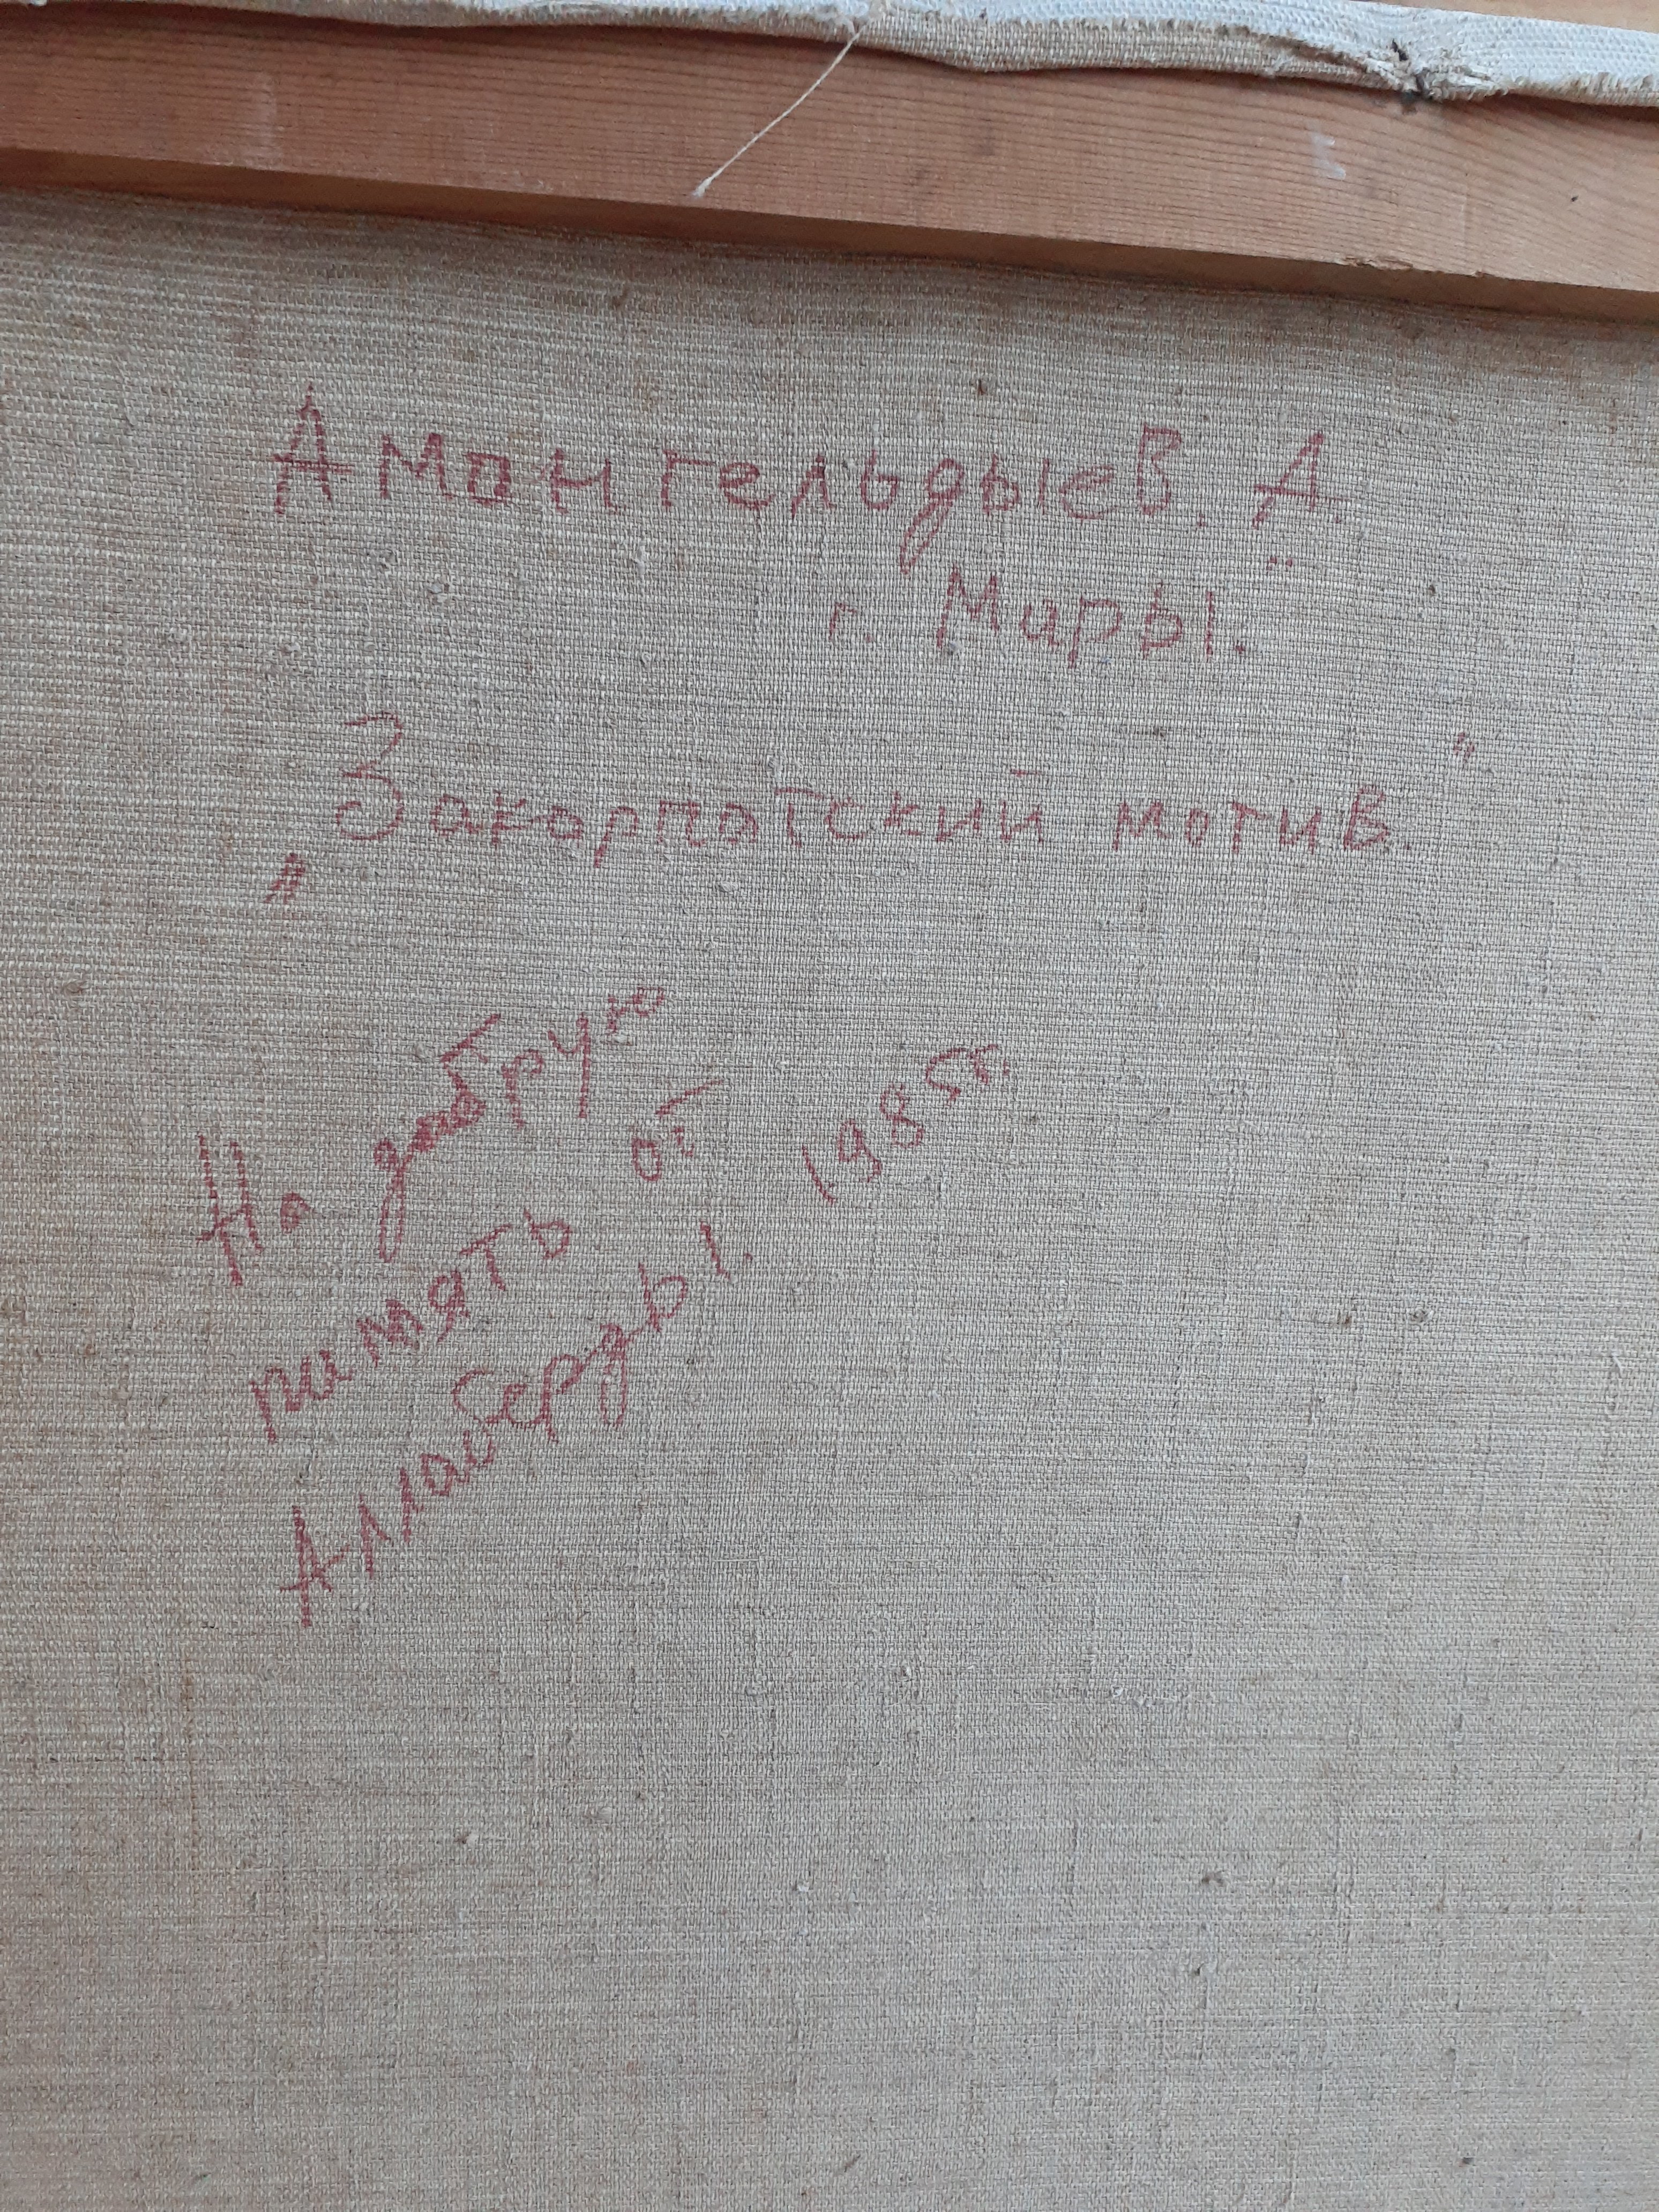 Амангельдыев. А.
г. Мары.
„Закарпатский мотив."
На добрую
память от
Аллаберды. 1985г.